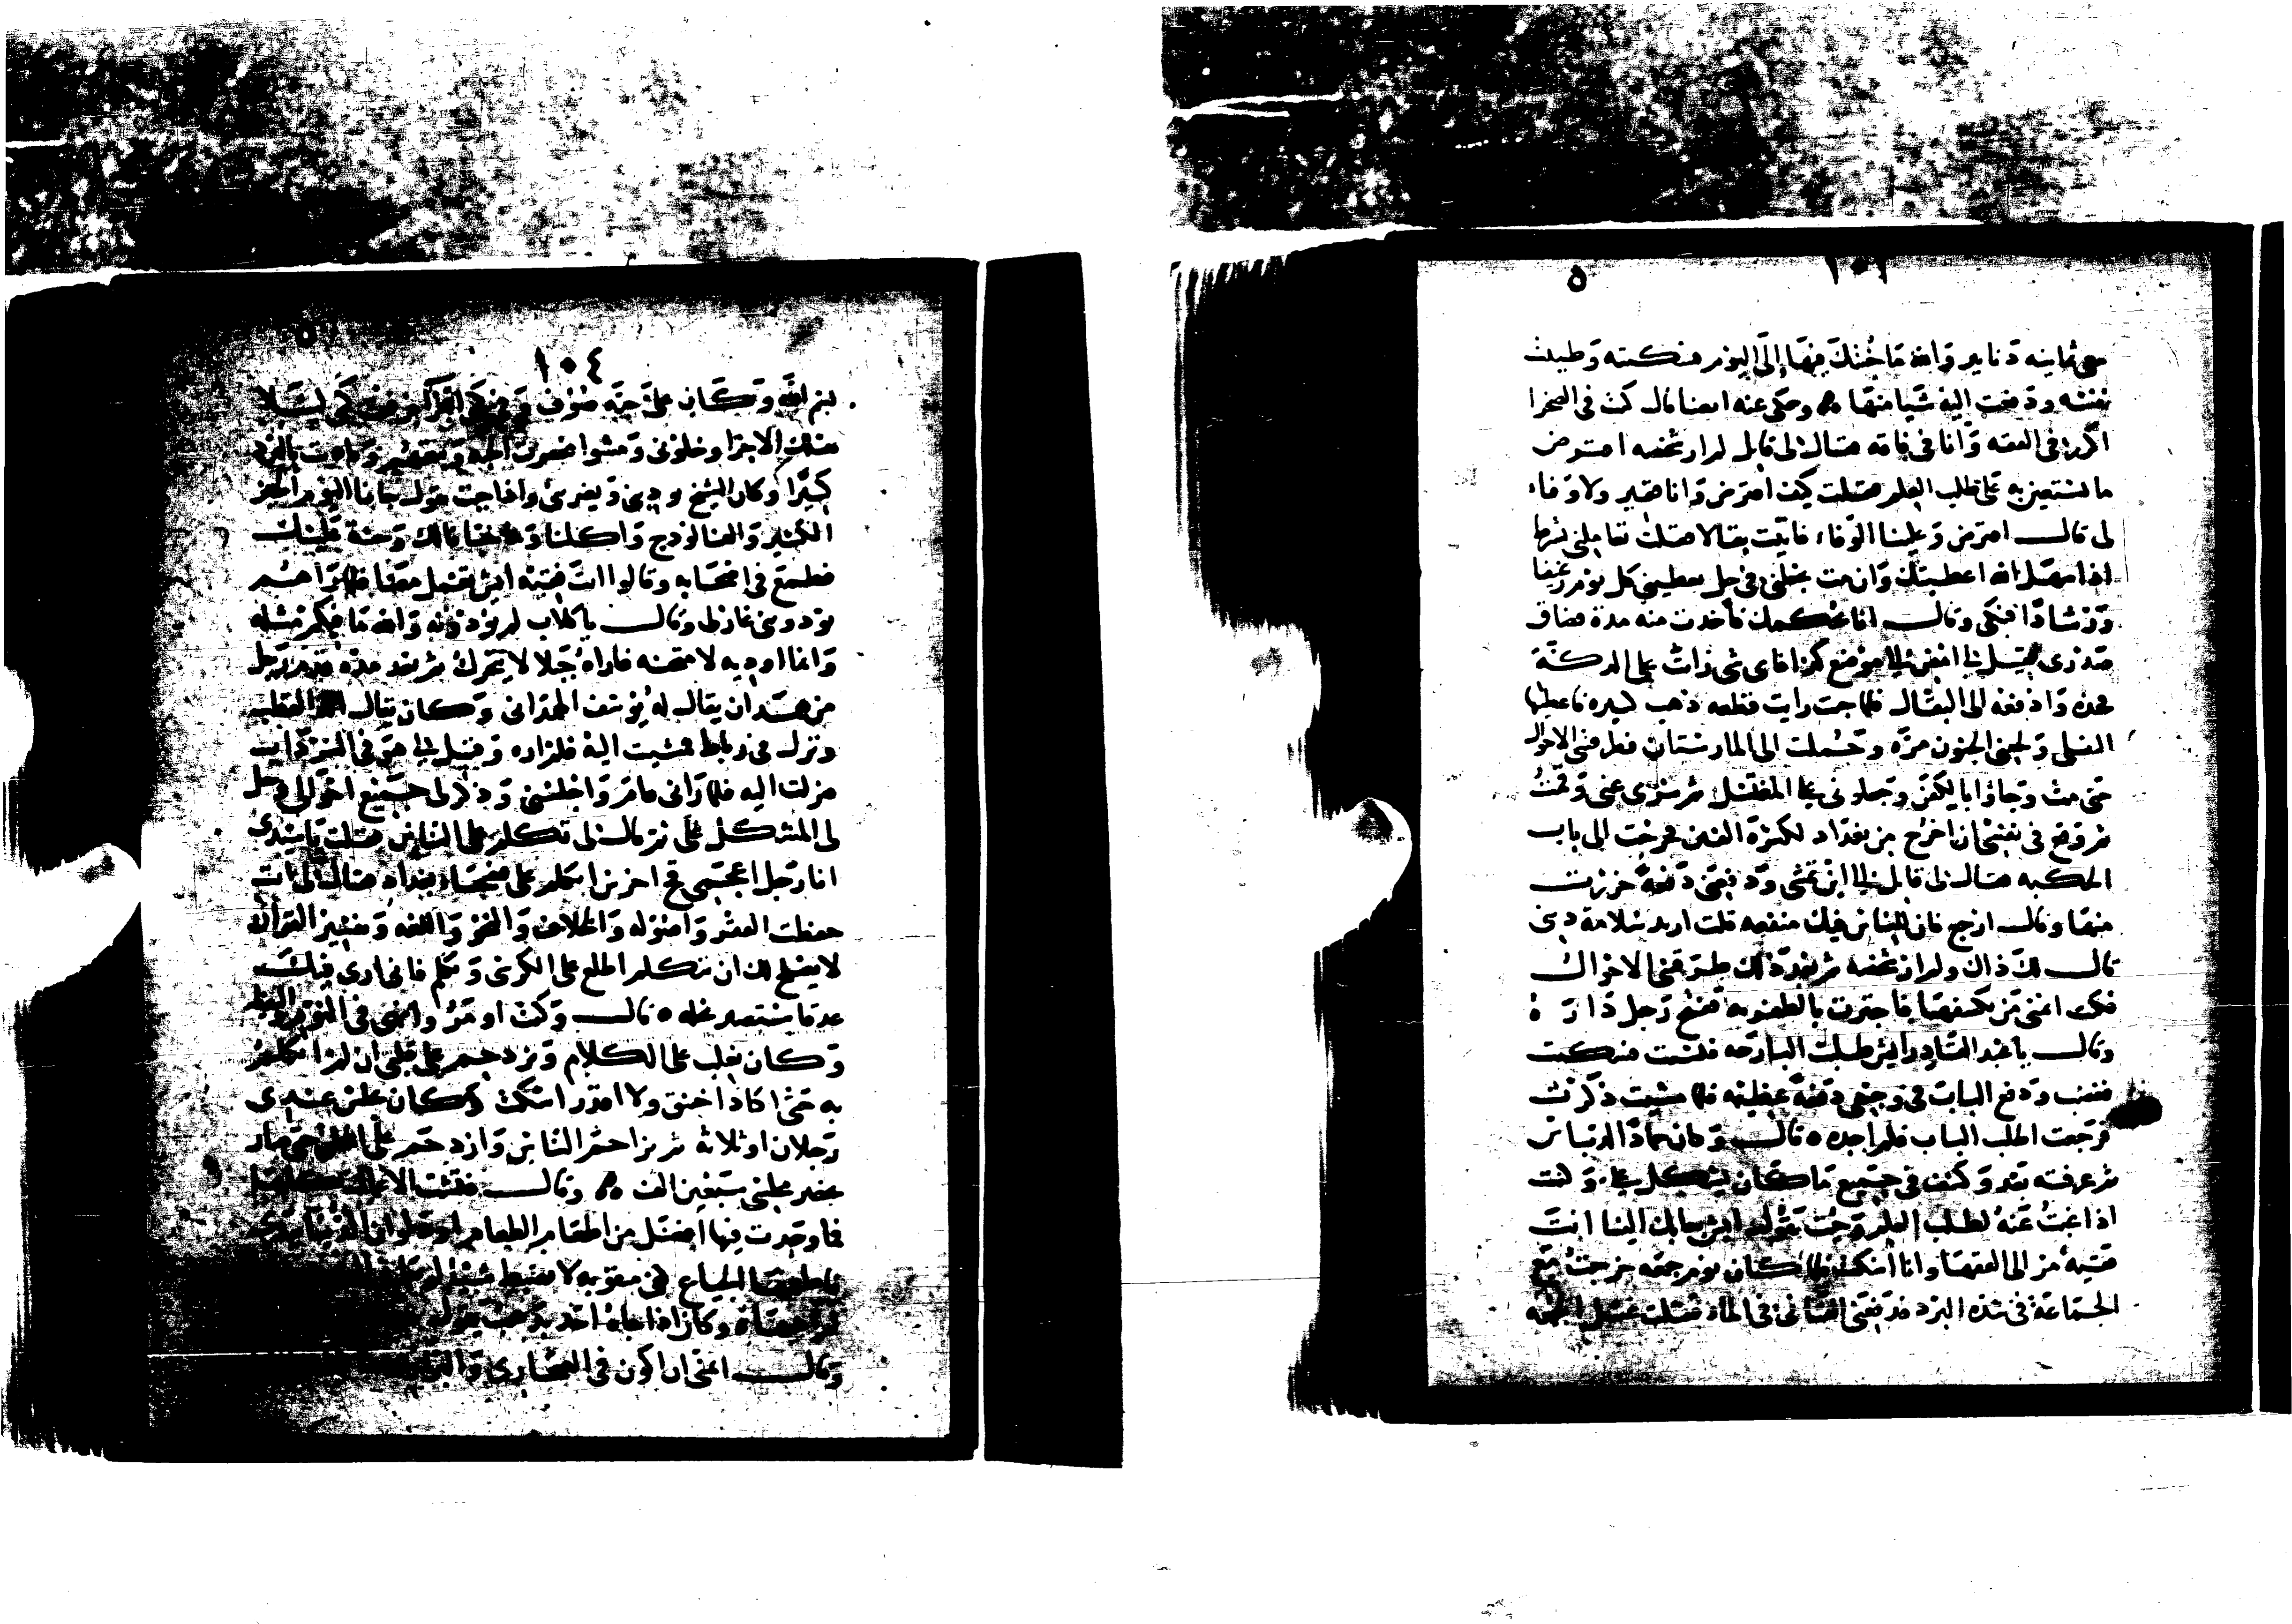 معي ثمانية دنانير والله ما خنتك فيها إلى اليوم فسكته وطيبت
نفسه ودفعت اليه شيا منها ه وحكى عنه ايضا قال كنت في الصحرا
اكرر في الفقه وانا في فاقة فقال لي قايل لم ار شخصه اقترض
ما تستعين به على طلب العلم فقلت كيف اقترض وانا فقير ولا وفاء
لي قال اقترض وعلينا الوفاء فاتيت بقالا فقلت تعاملني بشرط
اذا سهل الله اعطيتك وان مت تجعلني في حل تعطيني كل يوم رغيفا
ورشادا فبكى وقال انا بحكمك فأخذت منه مدة فضاق
صدري فقيل لي امض الى موضع كذا فاي شي رأيت على الدكة
فخذه وادفعه الى البقال فلما جيت رايت قطعه ذهب كبيره فاعطيتها
البقلي ولحقني الجنون مرة وحملت الى المارستان فطرقتني الاحوال
حتى مت وجاؤا بالكفن وجعلوني على المغتسل ثم سري عني وقمت
ثم وقع في نفسي ان اخرج من بغداد لكثرة الفتن فخرجت الى باب
الحلبه فقال لي قايل الى اين تمشي ودفعني دفعة خررت
منها وقال ارجع فان للناس فيك منفعه قلت اريد سلامة ديني
قال لك ذاك ولم ار شخصه ثم بعد ذلك طرقتني الاحوال
فكنت اتمنى من يكشفها فاجتزت بالظفريه ففتح رجل داره
وقال يا عبد القادر ايش طلبت البارحه فنسيت فسكت
فغضب ودفع الباب في وجهي دفعة عظيمه فلما مشيت ذكرت
فرجعت اطلب الباب فلم اجده ه قال وكان حماد الدباس
ثم عرفته بعد وكشف لي جميع ما كان يشكل علي وكنت
اذا غبت عنه لطلب العلم وجيت يقول ايش جابك الينا انت
فقيه مر الى الفقها وانا اسكت فلما كان يوم جمعه خرجت مع
الجماعة في شدة البرد فدفعني القاني في الماء فقلت غسل الجمعه
١٠٤
بسم الله وكان علي جبة صوف وفي كمي اجزا فرفعت كمي ليلا
تهلك الاجزا وخلوني ومشوا فعصرت الجبه وتبعتهم وتاذيت بالبرد
كثيرا وكان الشيخ يوذيني ويضربني واذا جيت يقول جانا اليوم الخبز
الكثير والفالوذج واكلنا وما خبانا لك وحشة عليك
فطمع في اصحابه وقالوا انت فقيه ايش تعمل معنا فلما رآهم
يوذونني غار لي وقال يا كلاب لم توذونه والله ما فيكم مثله
وانما اوذيه لامتحنه فاراه جبلا لا يتحرك ثم بعد مدة قدم رجل
من همدان يقال له يوسف الهمداني وكان يقال انه القطب
ونزل في رباط فمشيت اليه فلم اره وقيل لي هو في السرداب
فنزلت اليه فلما رآني قام واجلسني وذكر لي جميع احوالي وحل
لي المشكل علي ثم قال لي تكلم على الناس فقلت يا سيدي
انا رجل اعجمي قح اخرس اتكلم على فصحاء بغداد فقال لي انت
حفظت الفقه واصوله والخلاف والنحو واللغه وتفسير القرآن
لا يصلح لك ان تتكلم اطلع على الكرسي وتكلم فاني ارى فيك
عذقا سيصير نخله ه قال وكنت اومر وانهى في النوم واليقظه
وكان يغلب علي الكلام ويزدحم على قلبي ان لم اتكلم
به حتى اكاد اختنق ولا اقدر اسكت وكان يجلس عندي
رجلان او ثلاثة ثم تراحم الناس وازدحم علي الخلق حتى صار
يحضر مجلسي سبعين الف ه وقال فتشت الاعمال كلها
فما وجدت فيها افضل من اطعام الطعام اود لو ان الدنيا بيدي
فاطعمها الجياع كفي مثقوبه لا تضبط شيئا لو جاني
لم ابيتها وكان اذا جاه احد بذهب يقول
وقال اتمنى ان اكون في الصحاري والبراري